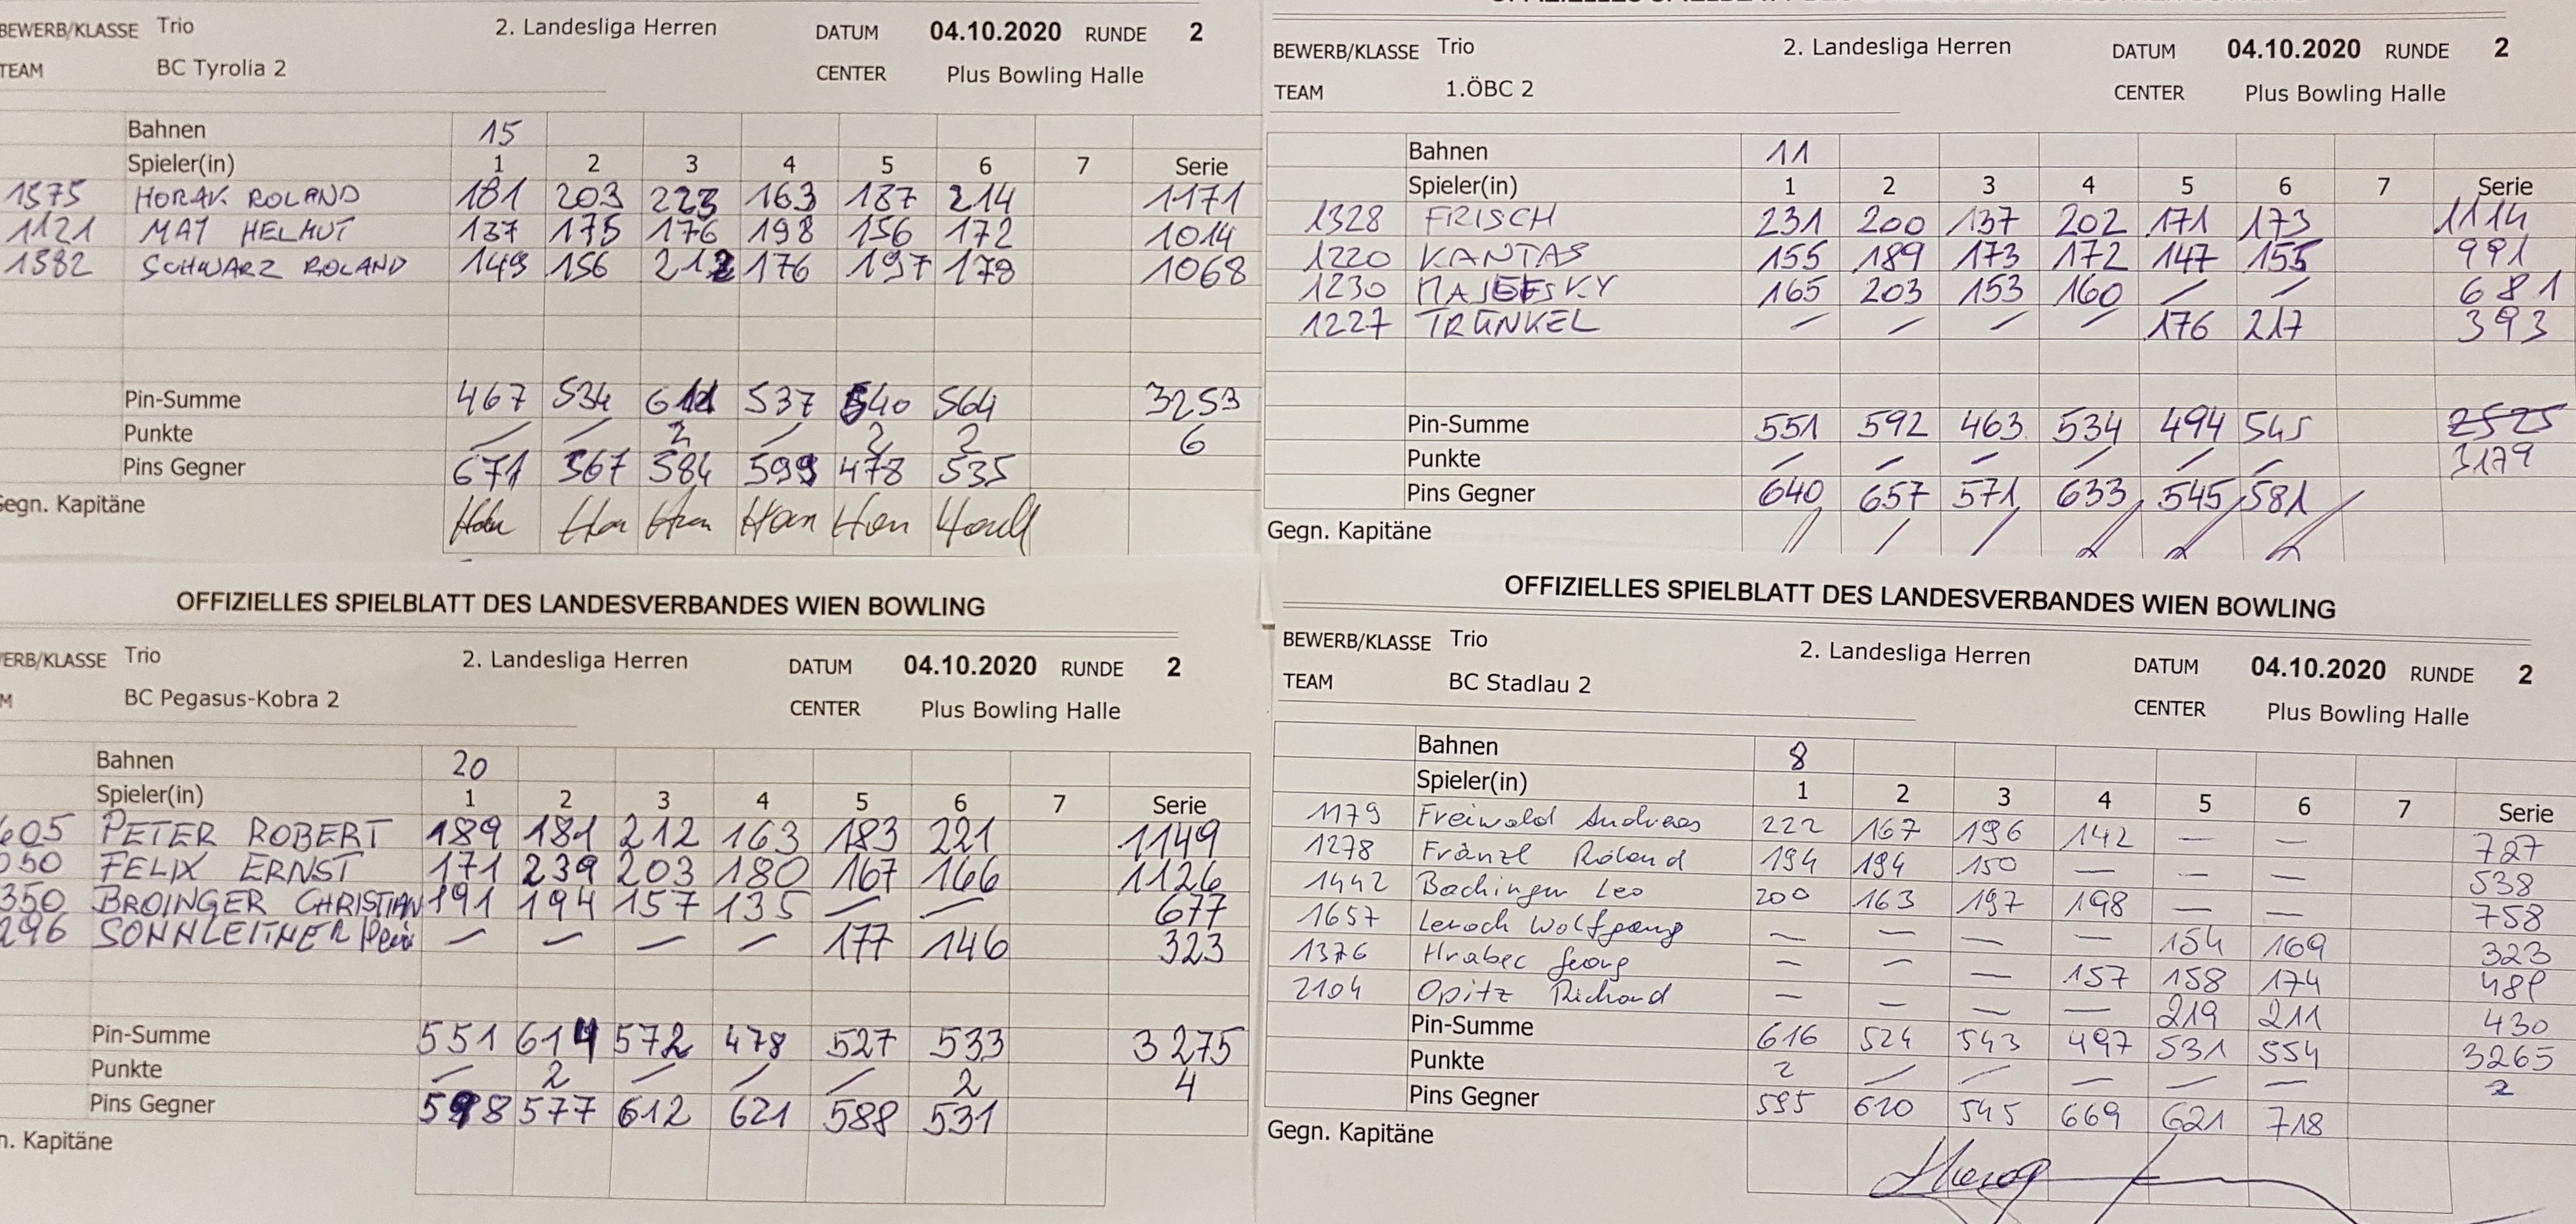 BEWERB/KLASSE Trio 2. Landesliga Herren DATUM 04.10.2020 RUNDE 2
TEAM BC Tyrolia 2 CENTER Plus Bowling Halle
Bahnen 15
Spieler(in) 1 2 3 4 5 6 7 Serie
1575 HORAK ROLAND 181 203 223 163 187 214 1171
1121 MAY HELMUT 137 175 176 198 156 172 1014
1382 SCHWARZ ROLAND 149 156 212 176 197 178 1068
Pin-Summe 467 534 611 537 540 564 3253
Punkte / / 2 / 2 2 6
Pins Gegner 671 567 584 599 478 535
Gegn. Kapitäne
BEWERB/KLASSE Trio 2. Landesliga Herren DATUM 04.10.2020 RUNDE 2
TEAM 1.ÖBC 2 CENTER Plus Bowling Halle
Bahnen 11
Spieler(in) 1 2 3 4 5 6 7 Serie
1328 FRISCH 231 200 137 202 171 173 1114
1220 KANTAS 155 189 173 172 147 155 991
1230 165 203 153 160 / / 681
1227 TRÜNKEL / / / / 176 217 393
Pin-Summe 551 592 463 534 494 545 2525
Punkte / / / / / / 3179
Pins Gegner 640 657 571 633 545 581
Gegn. Kapitäne
OFFIZIELLES SPIELBLATT DES LANDESVERBANDES WIEN BOWLING
ERB/KLASSE Trio 2. Landesliga Herren DATUM 04.10.2020 RUNDE 2
M BC Pegasus-Kobra 2 CENTER Plus Bowling Halle
Bahnen 20
Spieler(in) 1 2 3 4 5 6 7 Serie
605 PETER ROBERT 189 181 212 163 183 221 1149
050 FELIX ERNST 171 239 203 180 167 166 1126
350 BROINGER CHRISTIAN 191 194 157 135 / / 677
296 SONNLEITNER — — — — 177 146 323
Pin-Summe 551 614 572 478 527 533 3275
Punkte / 2 / / / 2 4
Pins Gegner 598 577 612 621 588 531
n. Kapitäne
OFFIZIELLES SPIELBLATT DES LANDESVERBANDES WIEN BOWLING
BEWERB/KLASSE Trio 2. Landesliga Herren DATUM 04.10.2020 RUNDE 2
TEAM BC Stadlau 2 CENTER Plus Bowling Halle
Bahnen 8
Spieler(in) 1 2 3 4 5 6 7 Serie
1179 Freiwald Andreas 222 167 196 142 — — 727
1278 Fränzl Roland 194 194 150 — — — 538
1442 Bachinger Leo 200 163 197 198 — — 758
1657 Lerach Wolfgang — — — — 154 169 323
1376 Hrabec Georg — — — 157 158 174 489
2104 Opitz Richard — — — — 219 211 430
Pin-Summe 616 524 543 497 531 554 3265
Punkte 2 / / — — — 2
Pins Gegner 595 620 545 669 621 718
Gegn. Kapitäne